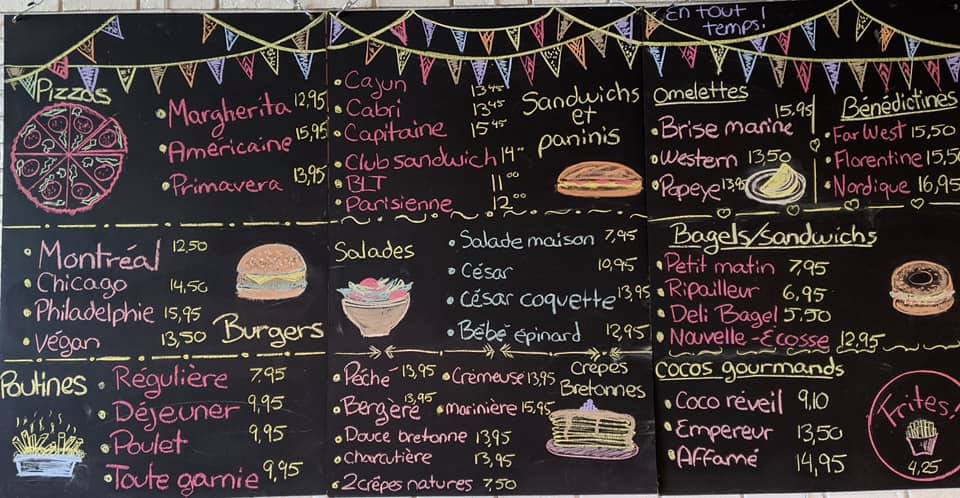 Pizzas
Margherita 12,95
Américaine 15,95
Primavera 13,95
Montréal 12,50
Chicago 14,50
Philadelphie 15,95
Végan 13,50
Burgers
Poutines
Régulière 7,95
Déjeuner 9,95
Poulet 9,95
Toute garnie 9,95
Cajun 13 45
Cabri 13 45
Capitaine 15 45
Club sandwich 14 00
BLT 11 00
Parisienne 12 00
Sandwichs
et
paninis
Salades
Salade maison 7,95
César 10,95
César coquette 13,95
Bébé épinard 12,95
Crêpes
Bretonnes
Péché 13,95 Crèmeuse 13,95
Bergère 13,95 marinière 15,95
Douce bretonne 13,95
Charcutière 13,95
2 crêpes natures 7,50
En tout
temps!
Omelettes
Brise marine 15,95
Western 13,50
Papeye 13,95
Bénédictines
Far West 15,50
Florentine 15,50
Nordique 16,95
Bagels/Sandwichs
Petit matin 7,95
Ripailleur 6,95
Deli Bagel 5.50
Nouvelle-Écosse 12,95
Cocos gourmands
Coco réveil 9,10
Empereur 13,50
Affamé 14,95
Frites!
4,25